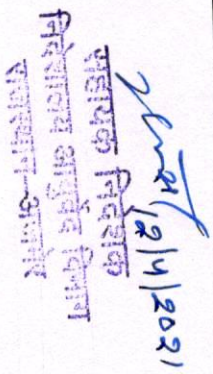 12/4/2021
सहायक निदेशक
निदेशालय आयुर्वेद विभाग
राजस्थान-अजमेर